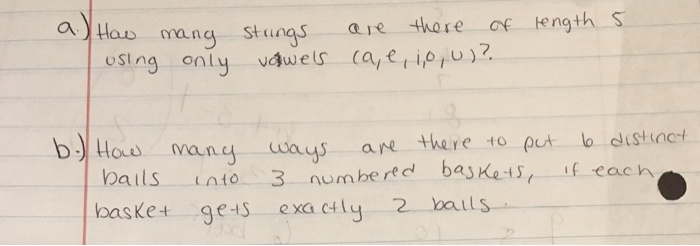 a.) How many strings are there of length 5
using only vowels (a,e,i,o,u)?
b.) How many ways are there to put 6 distinct
balls into 3 numbered baskets, if each
basket gets exactly 2 balls.